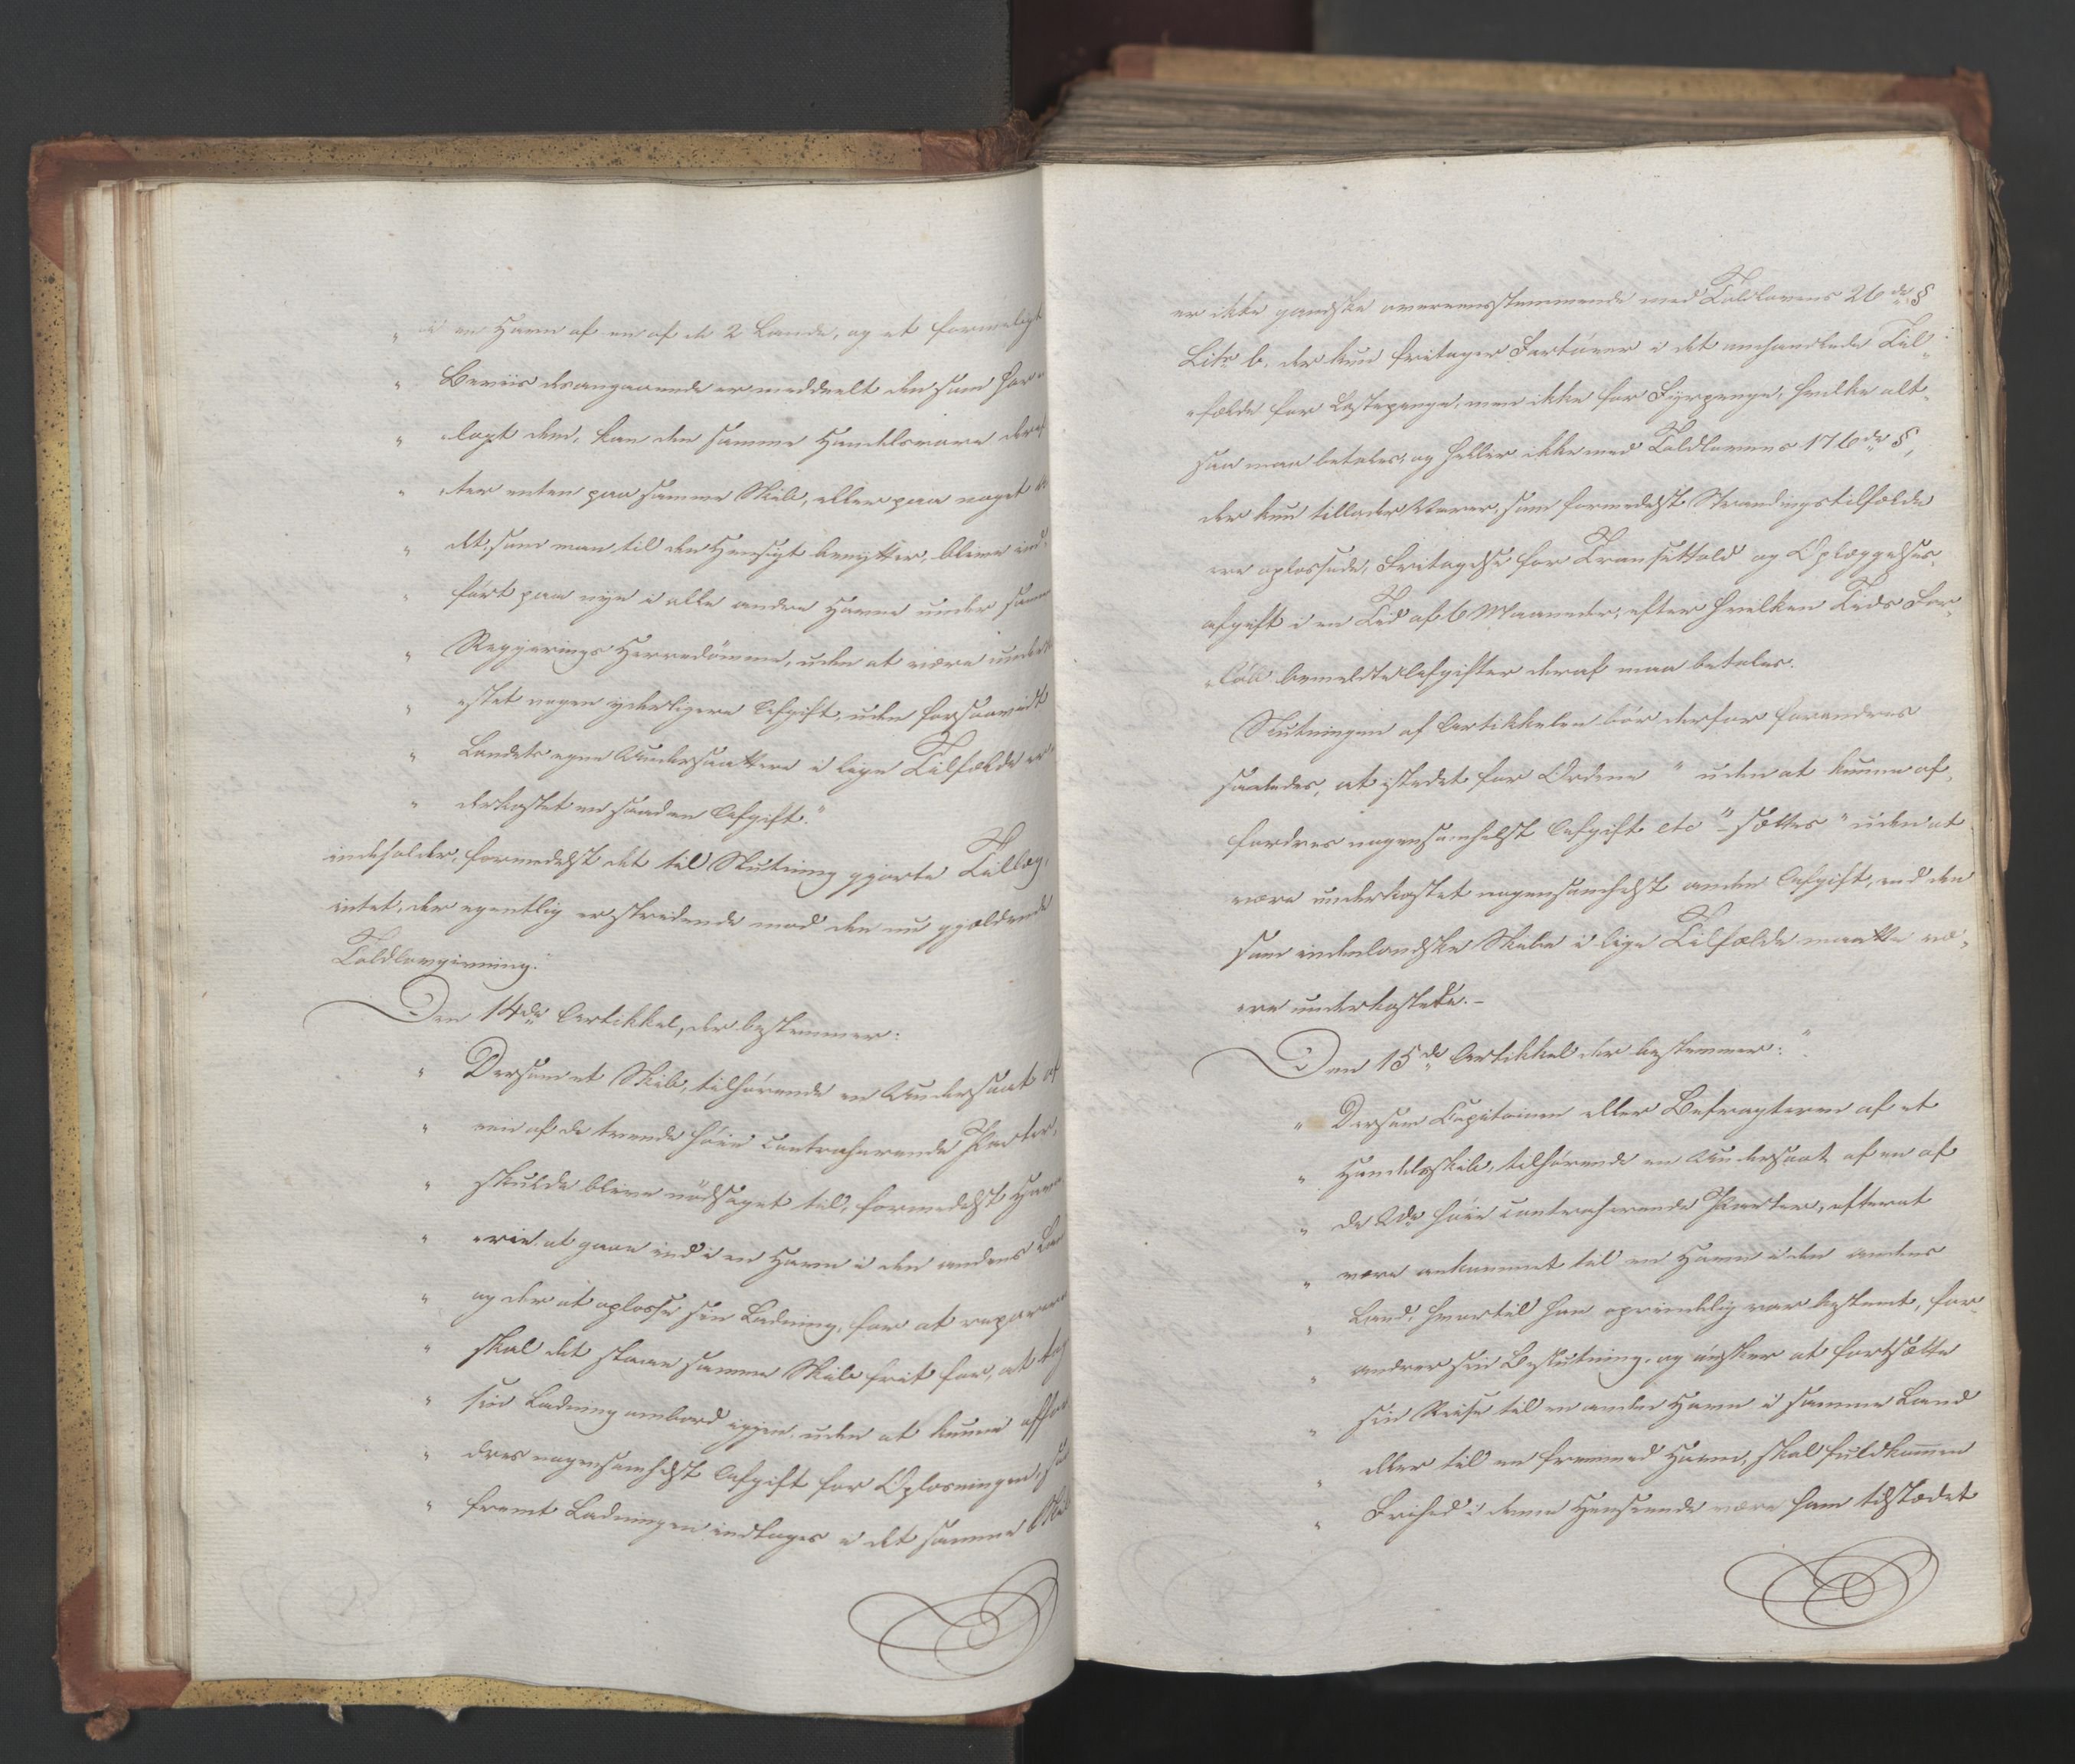 " i en Havn af en af de 2 Lande, og et formeligt
" Beviis desangaaende er meddeelt den som har er-
" lagt dem, kan den samme Handelsvare deref-
" ter enten paa samme Skib, eller paa noget an-
" det, som man til den Hensigt benytter, blive ind-
" ført paa nye i alle andre Havne under samme
" Regjerings Herredømme, uden at være underka-
" stet nogen yderligere Afgift, uden forsaavidt
" Landets egne Undersaattere i lige Tilfælde er un-
" derkastet en saadan Afgift."
indeholder, formedelst det til Slutning gjorte Tillæg,
intet, der egentlig er stridende mod den nu gjældende
Toldlovgivning.
Den 14de Artikkel, der bestemmer:
" Dersom et Skib, tilhørende en Undersaat af
" een af de tvende høie contraherende Parter,
" skulde blive nødsaget til, formedelst Hava-
" rie, at gaae ind i en Havn i den andens Land
" og der at oplosse sin Ladning, for at reparere
" skal det staae samme Skib frit for, at tage
" sin Ladning ombord igjen, uden at kunne affor-
" dres nogensomhelst Afgift for Oplosningen, saa-
" fremt Ladningen indtages i det samme Skib
er ikke gandske overeensstemmende med Toldlovens 26de §
Litr b. der kun fritager Fartøier i det omhandlede Til-
fælde for Lastepenge, men ikke for Fyrpenge, hvilke alt-
saa maa betales, og heller ikke med Toldlovens 176de §,
der kun tillader Varer, som formedelst Strandingstilfælde
ere oplossede, Fritagelse for Transittold og Oplæggelses-
afgift i en Tid af 6 Maaneder, efter hvilken Tids For-
løb bemeldte Afgifter deraf maa betales.
Slutningen af Artikkelen bør derfor forandres
saaledes, at istedet for Ordene " uden at kunne af-
fordres nogensomhelst Afgift etc "- sættes " uden at
være underkastet nogensomhelst anden Afgift, end den
som indenlandske Skibe i lige Tilfælde maatte væ-
re underkastede.-
Den 15de Artikkel der bestemmer: "
" Dersom Capitainen eller Befragteren af et
" Handelsskib, tilhørende en Undersaat af en af
" de 2de høie contraherende Parter, efterat
" være ankommet til en Havn i den andens
" Land, hvortil han oprindelig var bestemt, for-
" andrer sin Beslutning, og ønsker at fortsætte
" sin Reise til en anden Havn i samme Land
" eller til en fremmed Havn, skal fuldkommen
" Frihed i denne Henseende være ham tilstædet